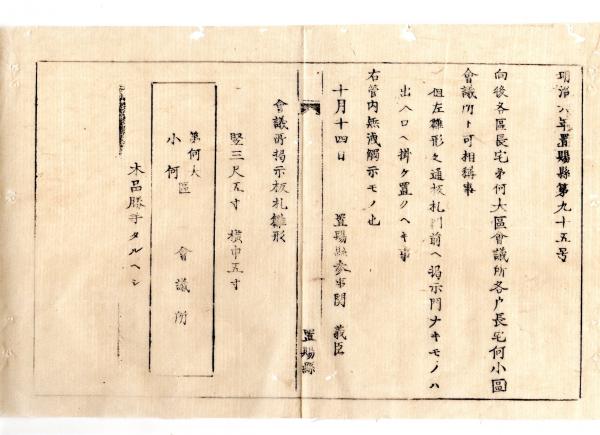 明治八年置賜縣第九十五号
向後各區長宅第何大區會議所各戸長宅何小區
會議所ト可相稱事
但左雛形之通板札門前ヘ掲示門ナキモノハ
出入口ヘ掛ケ置クヘキ事
右管内無洩觸示モノ也
十月十四日 置賜縣参事関 義臣
置賜縣
會議所掲示板札雛形
竪三尺五寸 横巾五寸
第何大
小何區 會議所
木品勝手タルヘシ